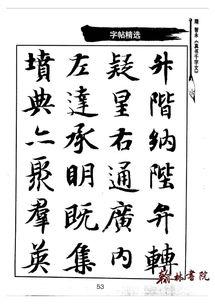 字帖精选
隋 智永《真书千字文》
升階納陛弁轉
疑星右通廣內
左達承明既集
墳典亦聚羣英
53
翰林書院